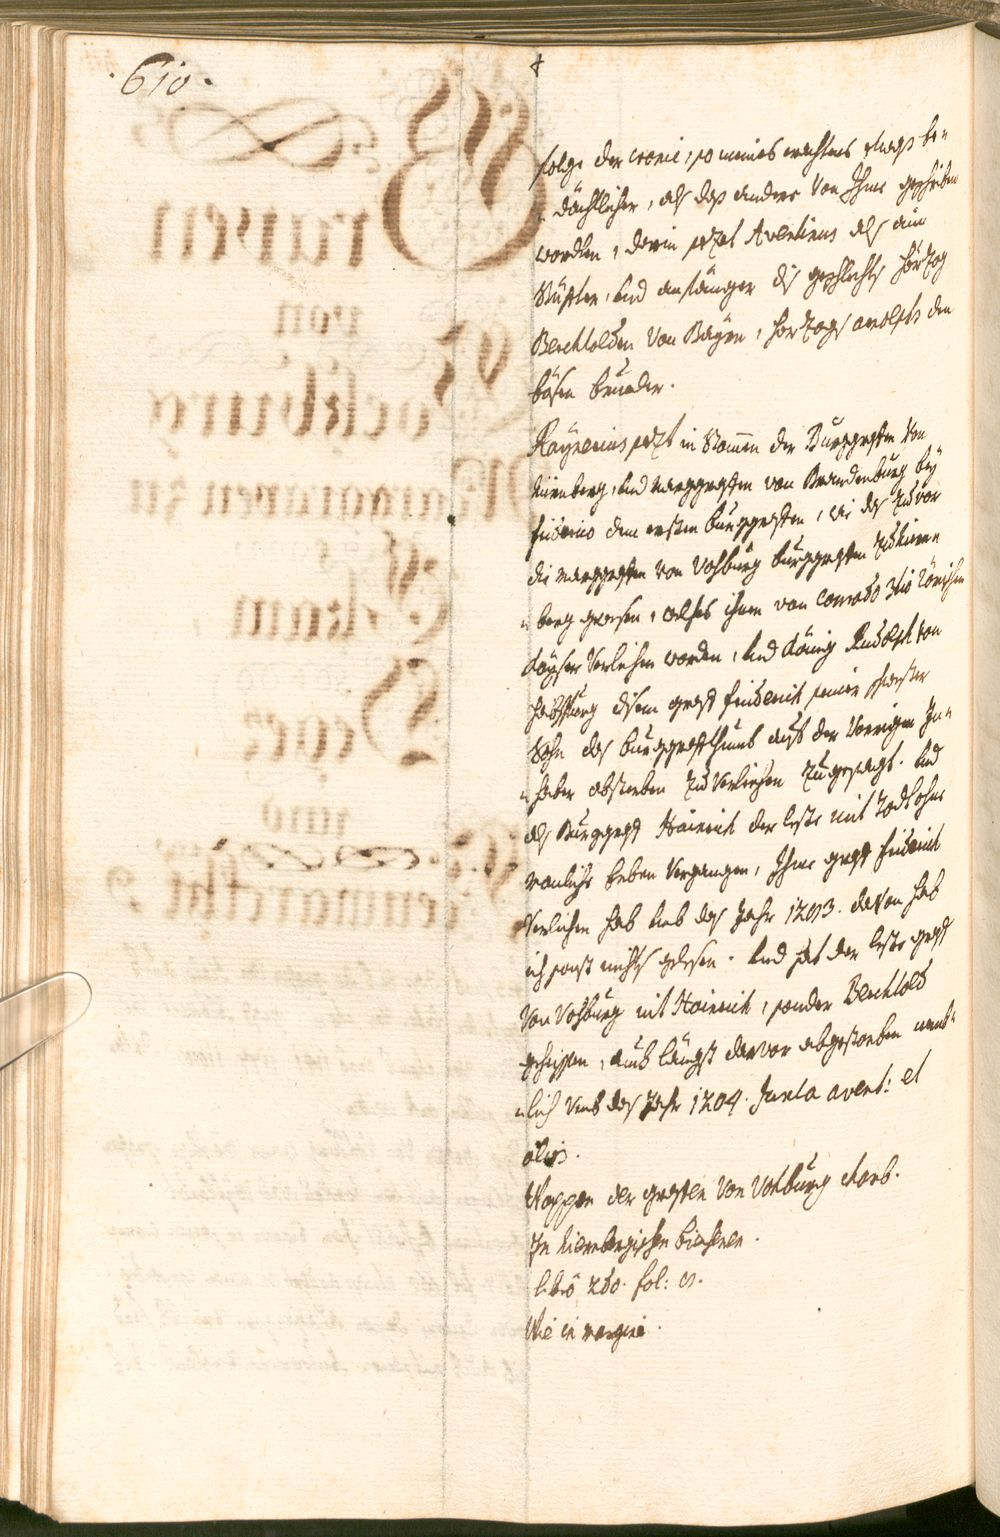 ·610·
folge der cronic, so meines erachtens etwas be=
= dächtlicher, als das andere von Ihme geschriben
worden, darin sezt Aventinus als ain
Stüffter, und anfänger dis geschlechts Hörzog
Berchtolden von Bayrn, Herzogs arnolphs den
bösen brueder.
Raynerius sezt in Stamen der Burggraffen von
Nürnberg, und Marggraffen von Brandenburg bey
friderico dem ersten burggraffen, wie das zuvor
die Marggraffen von Vohburg burggraffen zu Nürn
= berg gewesen, welches ihnen von Conrado 3tio römischen
Kayser verlihen worden, und König Rudolph von
Habspurg disem graff friderich seiner schwester
Sohn das burggraffthumb auf der vorigen In=
= haber absterben zu verleihen zugesagt. Und
als Burggraff Hainrich der leste mit Todt ohne
manliche Erben vergangen, Ihme graff friderich
verlichen hab umb das Jahr 1273. davon hab
ich sonst nichts gelesen. Und hat der leste graff
von Vohburg nit Hainrich, sonder Berchtold
gehaissen, auch längst darvor abgestorben nemb=
= lich umb das Jahr 1204. Juxta avent: et
alios.
Wappen der graffen von Vohburg
In Nürnbergischen
libro 260. fol:
Wie in margine.